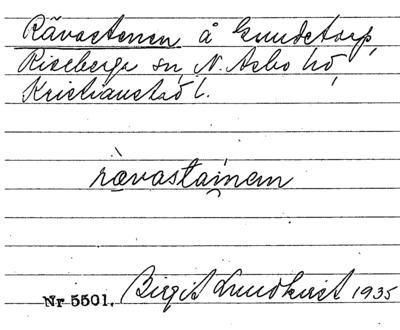 Rävastenen å Gundstorp,
Riseberga sn, N. Åsbo hd,
Kristianstad l.
rävastainen
Nr 5501. Birgit Lundkvist 1935